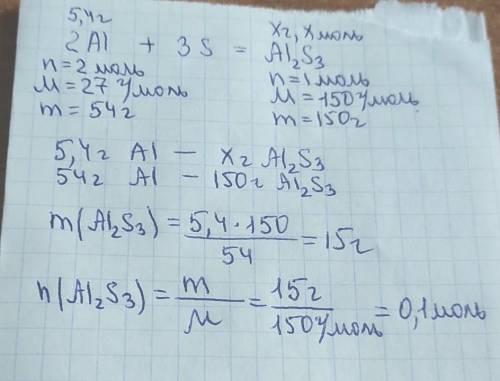 5,4г Xг, Xмоль
2Al + 3S = Al₂S₃
n=2 моль n=1моль
M=27 г/моль M=150г/моль
m=54г m=150г
5,4г Al — Xг Al₂S₃
54г Al – 150г Al₂S₃
m(Al₂S₃) = 5,4·150/54 = 15г
n(Al₂S₃) = m/M = 15г/150г/моль = 0,1моль